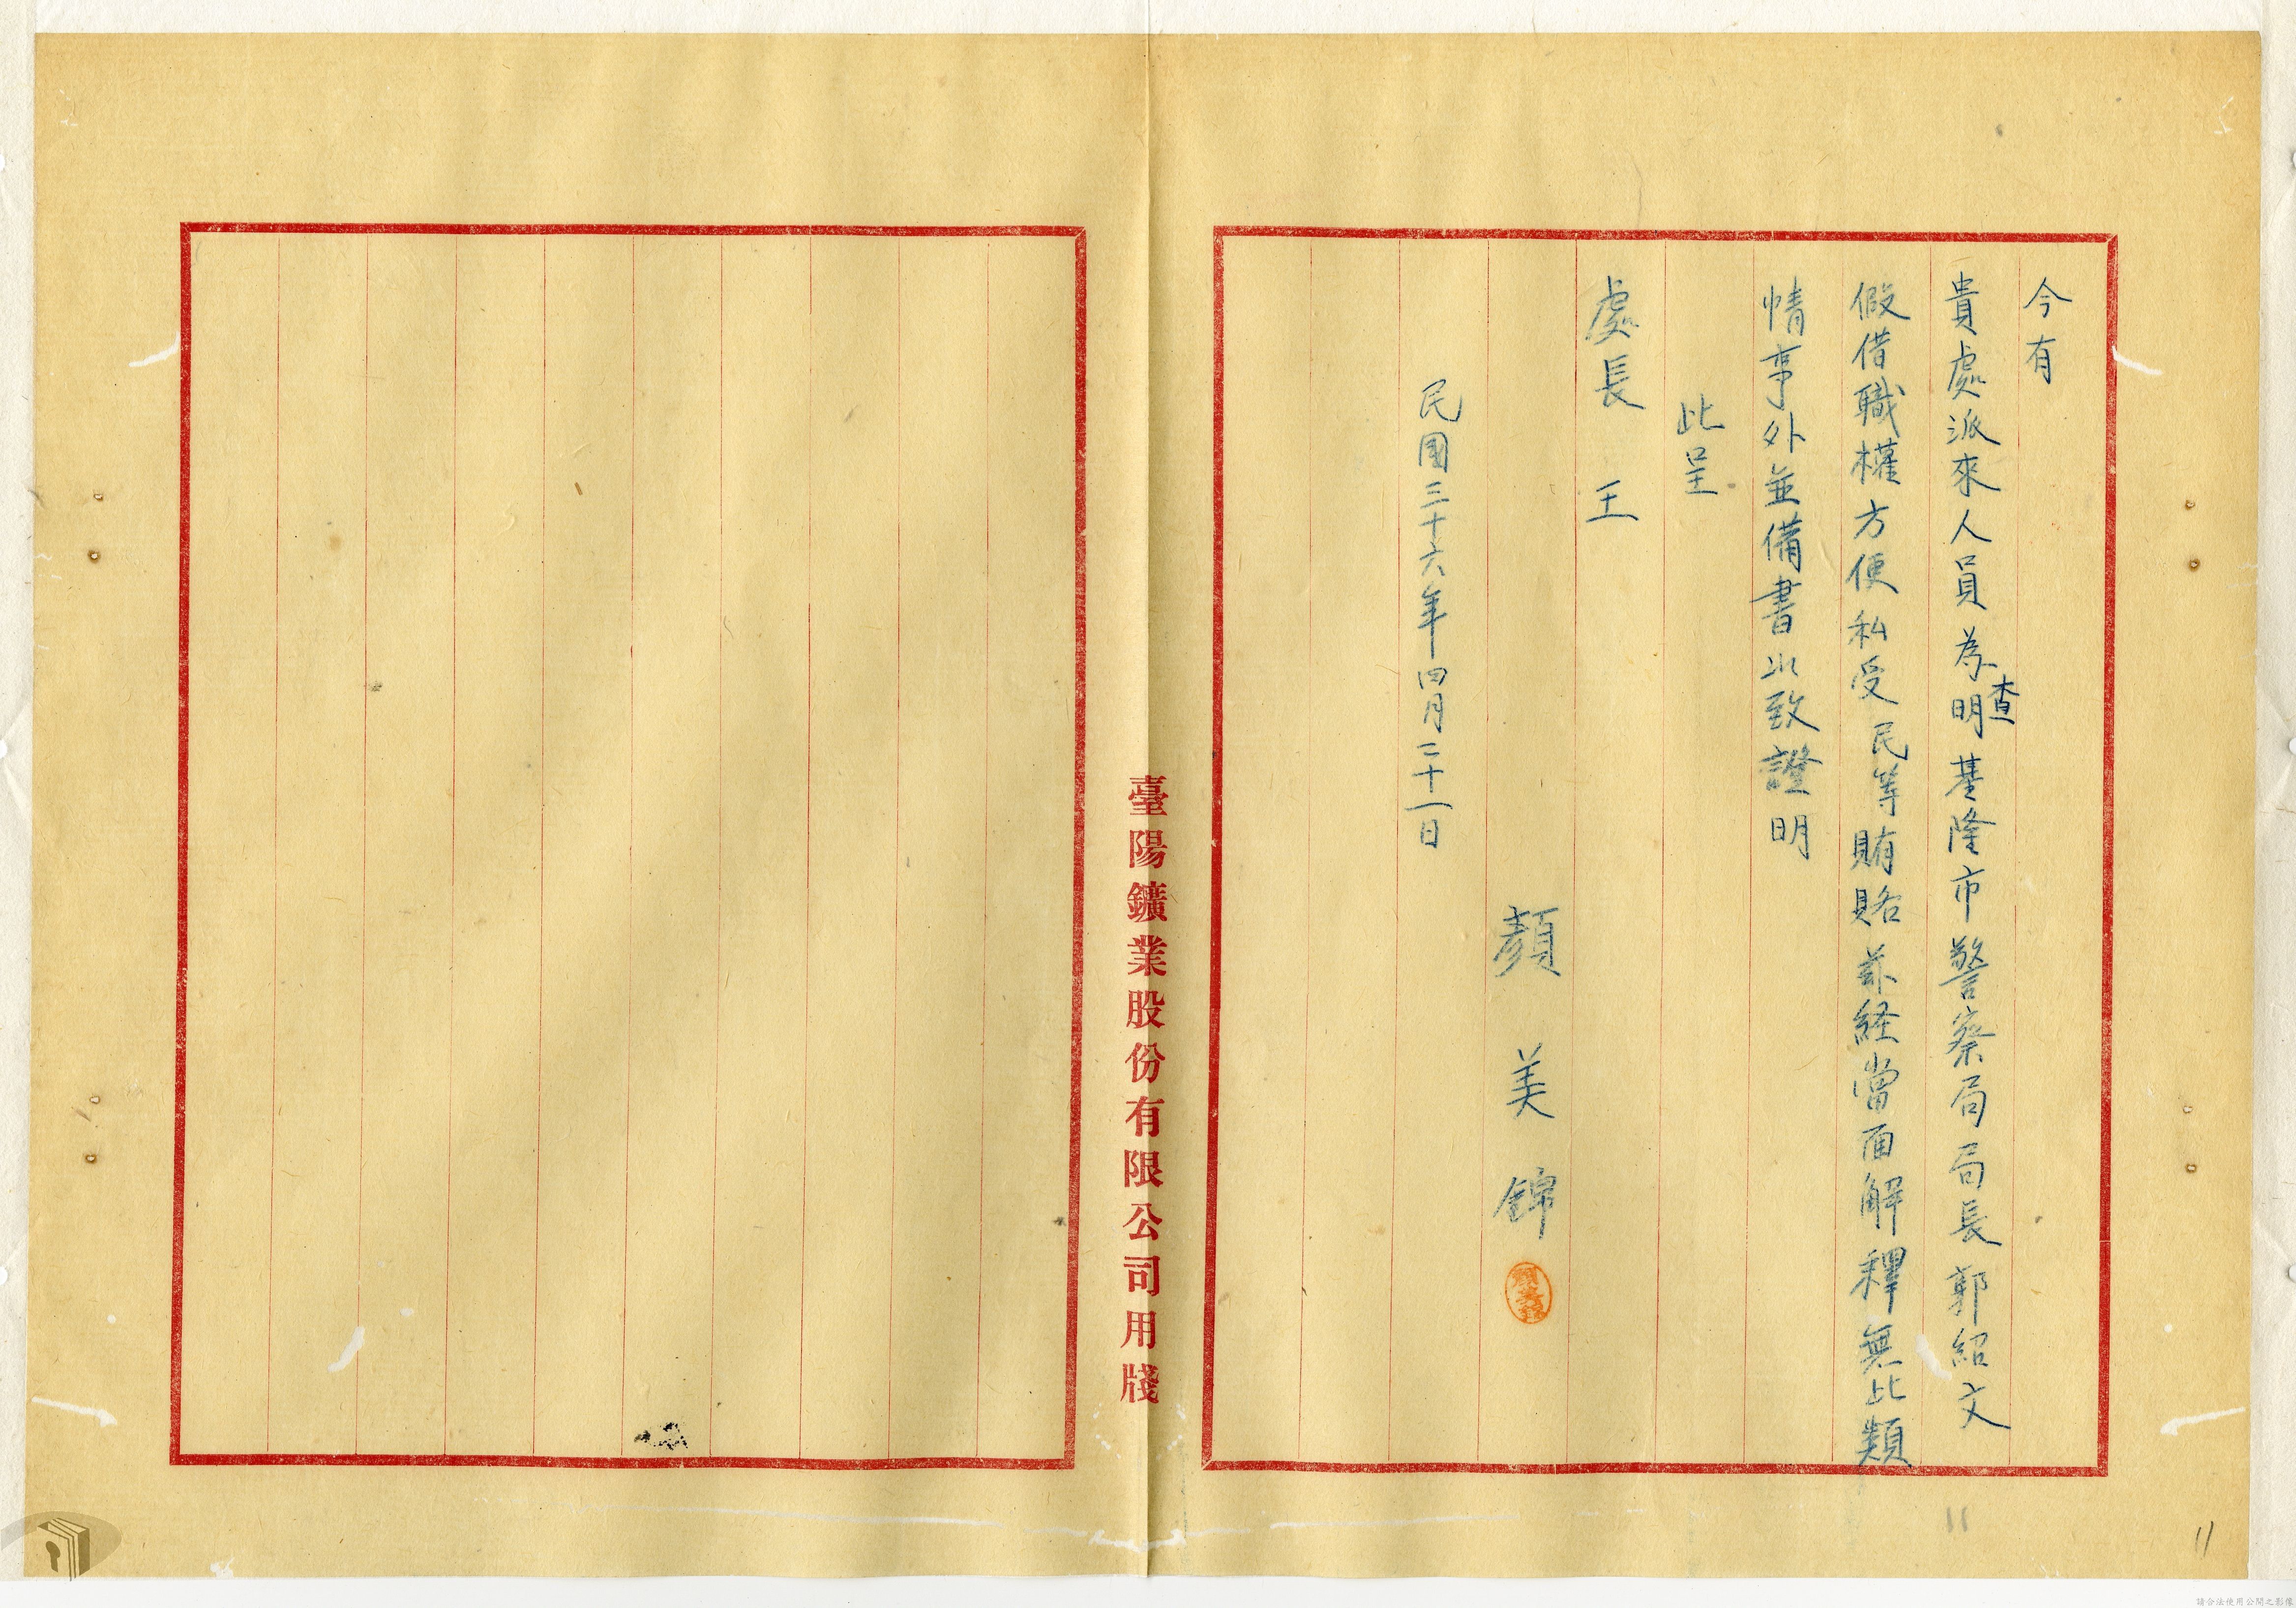 今有
貴處派來人員為查明基隆市警察局局長郭紹文
假借職權方便私受民等賄賂茲経當面解釋無此類
情事外並備書以致證明
此呈
處長 王
顏美錦
民國三十六年四月二十一日
臺陽鑛業股份有限公司用牋
11
11
請合法使用公開之影像